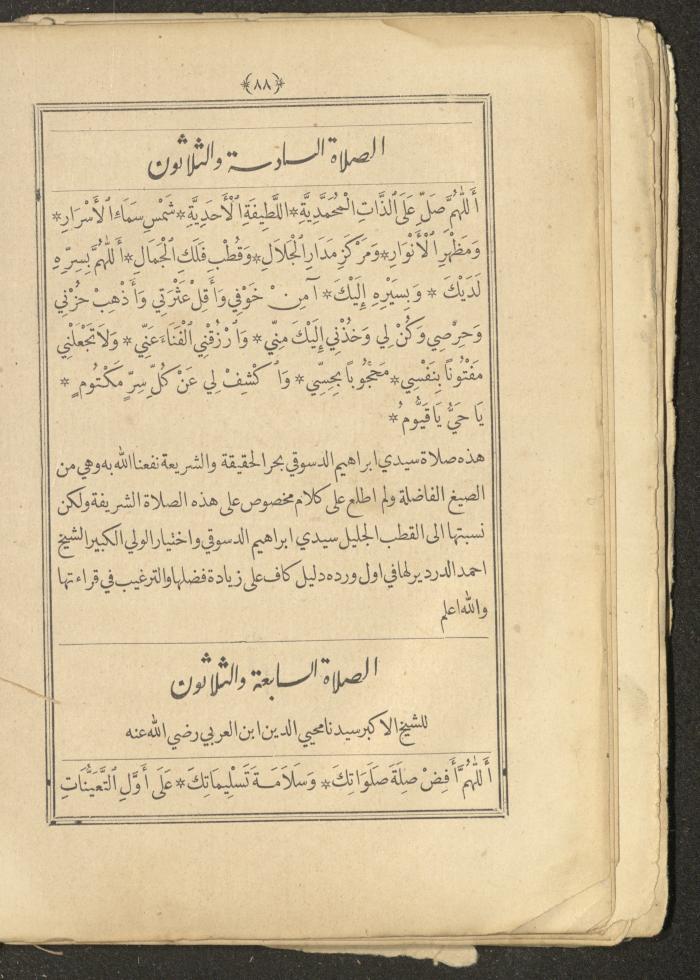 ﴿٨٨﴾
الصلاة السادسة والثلاثون
أَللّٰهُمَّ صَلِّ عَلَى ٱلذَّاتِ الْمُحَمَّدِيَّةِ * اللَّطِيفَةِ ٱلْأَحَدِيَّةِ * شَمْسِ سَمَاءِ ٱلْأَسْرَارِ *
وَمَظْهَرِ ٱلْأَنْوَارِ * وَمَرْكَزِ مَدَارِ الْجَلَالِ * وَقُطْبِ فَلَكِ الْجَمَالِ * أَللّٰهُمَّ بِسِرِّهِ
لَدَيْكَ * وَبِسَيْرِهِ إِلَيْكَ * آمِنْ خَوْفِي وَأَقِلْ عَثْرَتِي وَأَذْهِبْ حُزْنِي
وَحِرْصِي وَكُنْ لِي وَخُذْنِي إِلَيْكَ مِنِّي * وَٱرْزُقْنِي ٱلْفَنَاءَ عَنِّي * وَلَا تَجْعَلْنِي
مَفْتُونًا بِنَفْسِي * مَحْجُوبًا بِحِسِّي * وَٱكْشِفْ لِي عَنْ كُلِّ سِرٍّ مَكْتُومٍ *
يَا حَيُّ يَا قَيُّومُ *
هذه صلاة سيدي ابراهيم الدسوقي بحر الحقيقة والشريعة نفعنا الله به وهي من
الصيغ الفاضلة ولم اطلع على كلام مخصوص على هذه الصلاة الشريفة ولكن
نسبتها الى القطب الجليل سيدي ابراهيم الدسوقي واختيار الولي الكبير الشيخ
احمد الدردير لها في اول ورده دليل كاف على زيادة فضلها والترغيب في قراءتها
والله اعلم
الصلاة السابعة والثلاثون
للشيخ الاكبر سيدنا محيي الدين ابن العربي رضي الله عنه
أَللّٰهُمَّ أَفِضْ صِلَةَ صَلَوَاتِكَ * وَسَلَامَةَ تَسْلِيمَاتِكَ * عَلَى أَوَّلِ ٱلتَّعَيُّنَاتِ